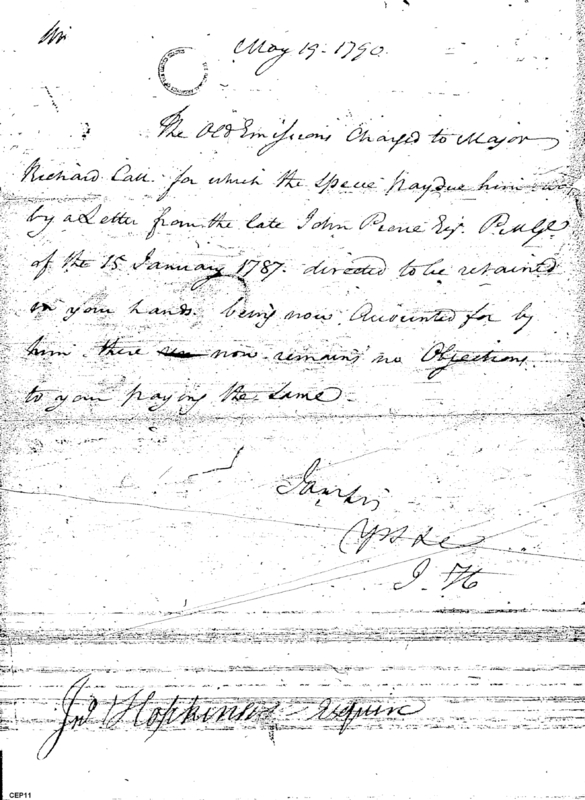 Sir
May 19. 1790.
The Old Emissions Charged to Major
Richard Call. for which the specie pay due him
by a Letter from the late John Pierce Esqr. P.M.Gl.
of the 15 January 1787. directed to be retained
in your hands. being now Accounted for by
him there now remains no Objections
to your paying the Same.
I am Sir
Yrs &c
J. H
Jno Hopkins esquire
CEP11